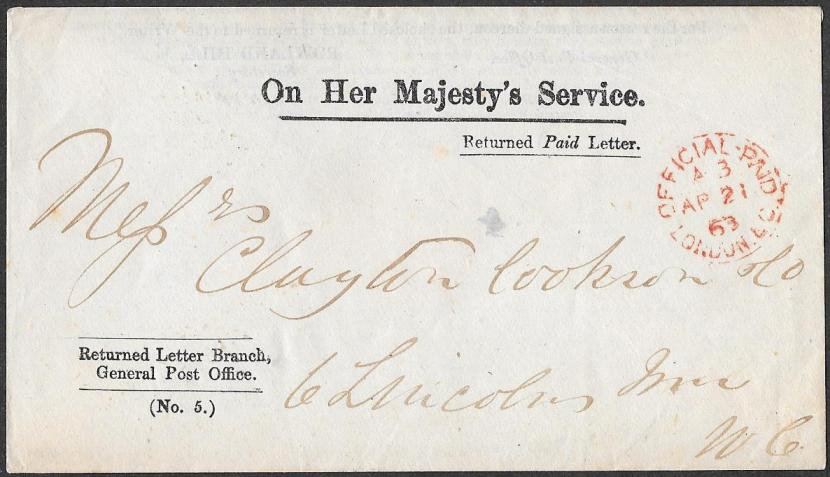 On Her Majesty's Service.
Returned Paid Letter.
OFFICIAL-PAID
A 3
AP 21
63
LONDON
Messrs
Clayton Cookson & Co
6 Lincolns Inn
W.C.
Returned Letter Branch,
General Post Office.
(No. 5.)